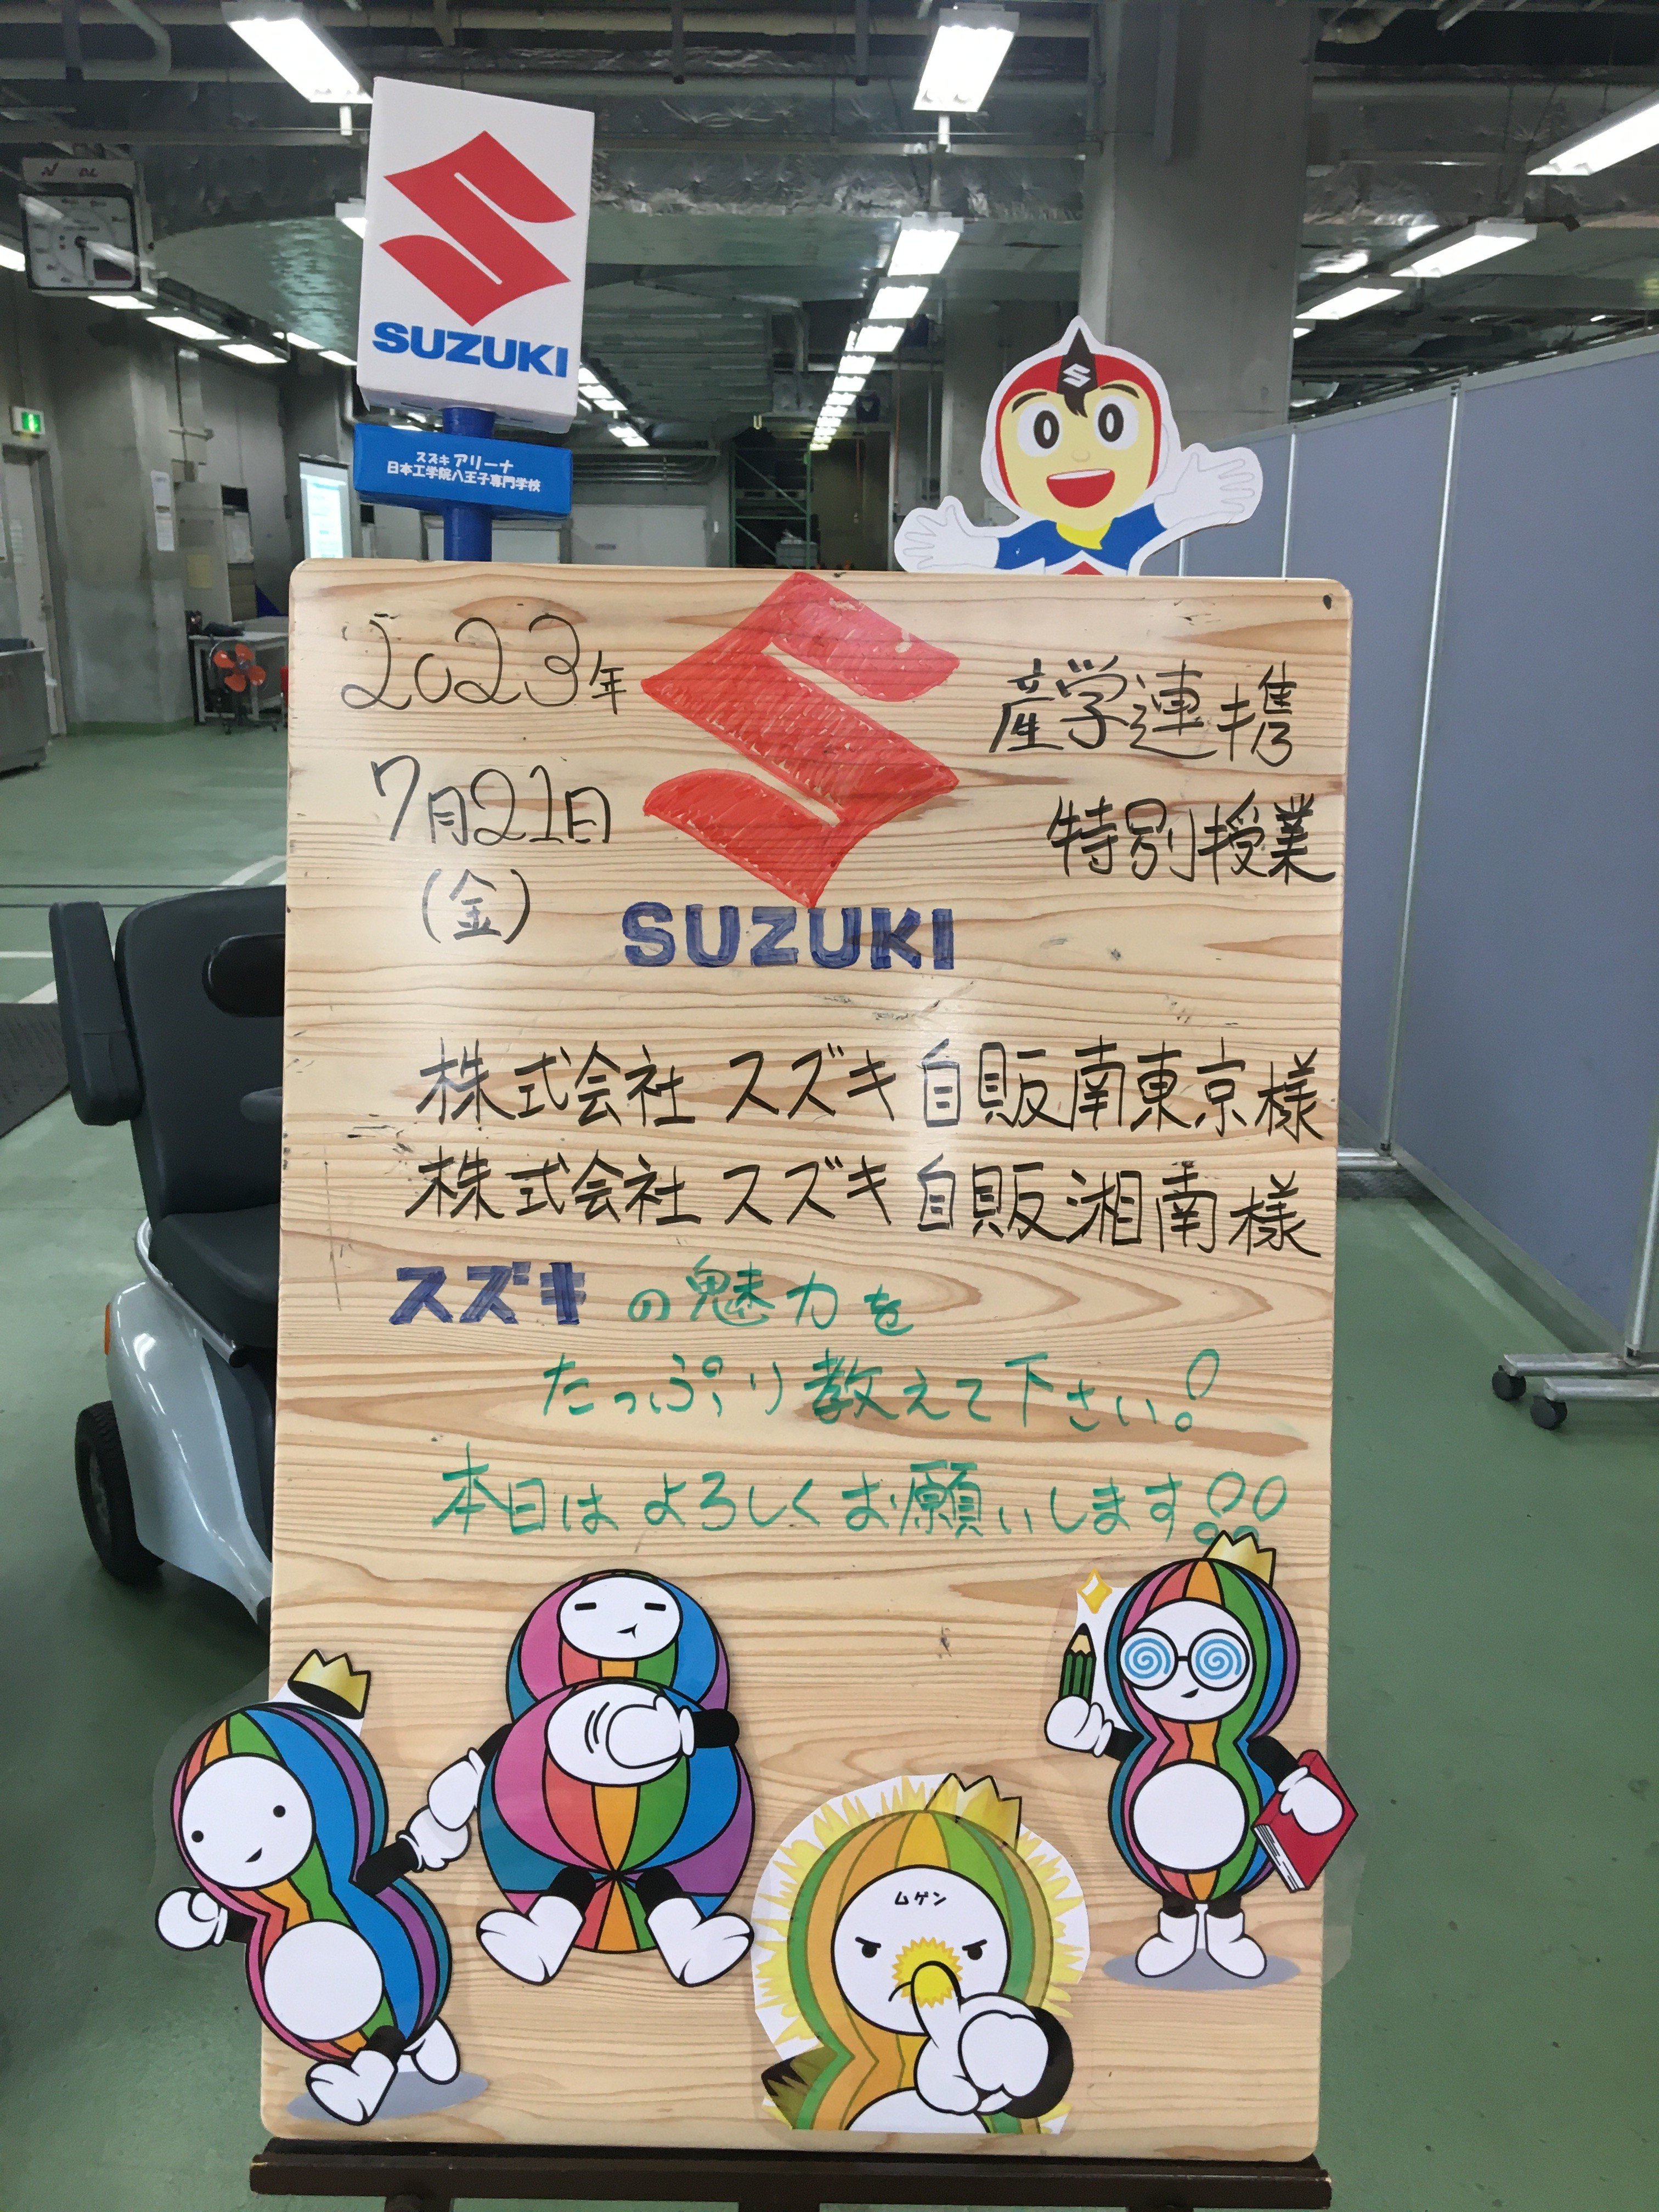 SUZUKI
スズキ アリーナ
日本工学院八王子専門学校
2023年
7月21日
(金)
SUZUKI
産学連携
特別授業
株式会社 スズキ自販南東京様
株式会社 スズキ自販湘南様
スズキの魅力を
たっぷり教えて下さい!
本日はよろしくお願いします!!
ムゲン